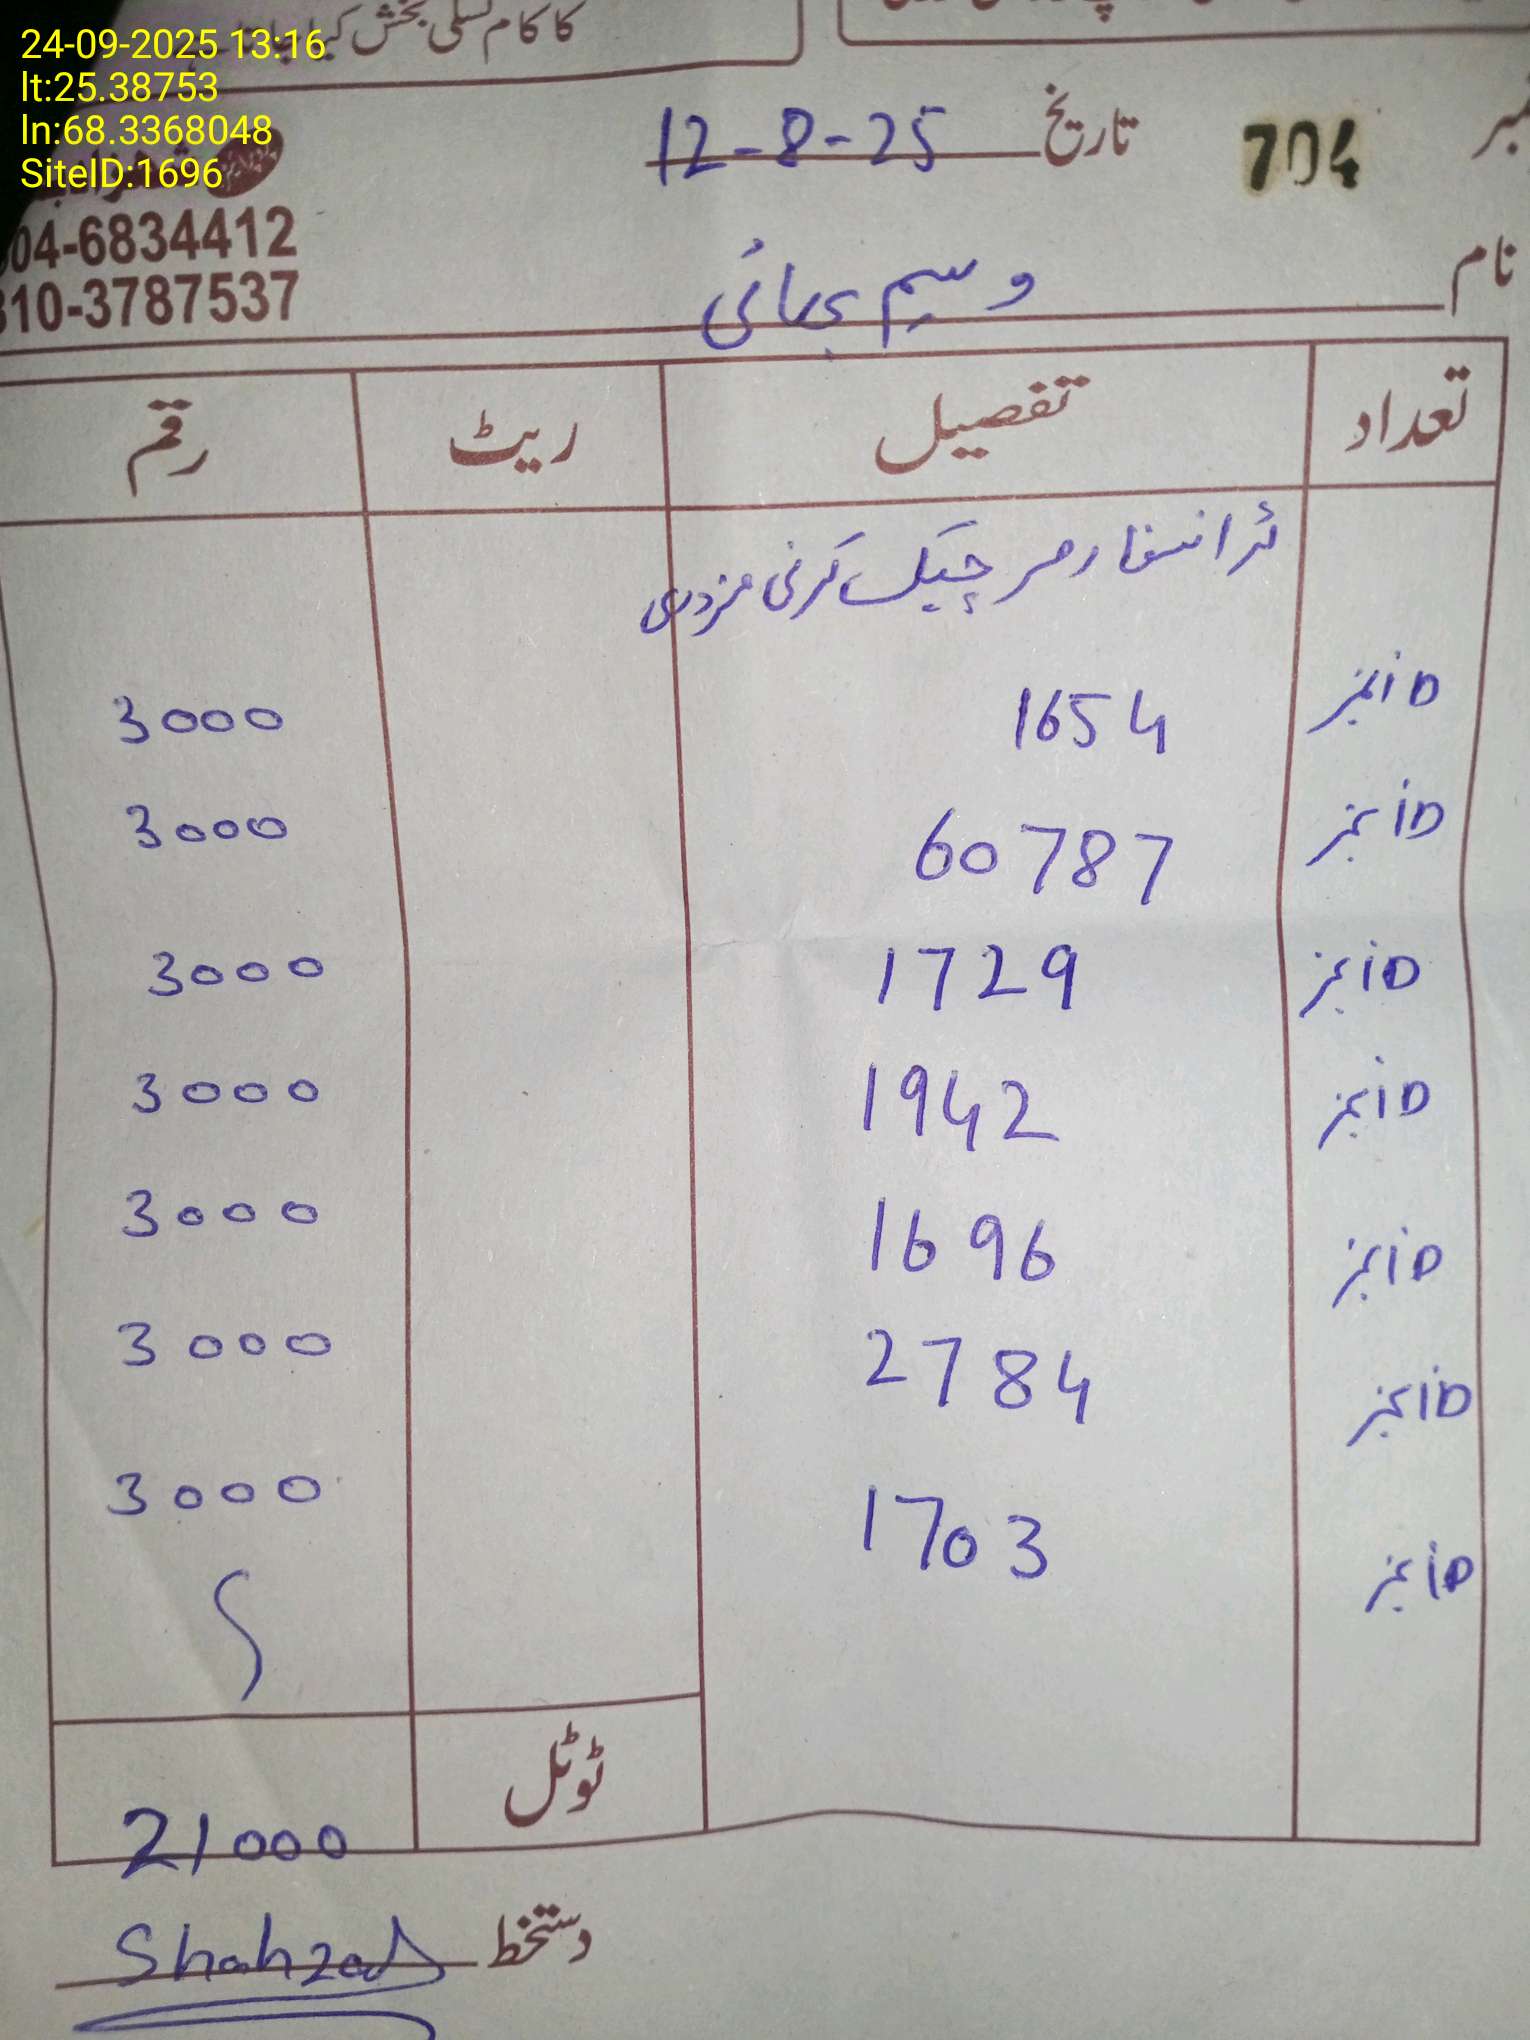 24-09-2025 13:16
lt:25.38753
ln:68.3368048
SiteID:1696
کا کام تسلی بخش کیا
704 تاریخ 12-8-25
04-6834412
310-3787537
نام وسیم بھائی
تعداد تفصیل ریٹ رقم
ٹرانسفارمر چیک کرنی مزدری
iD نمبر 1654 3000
iD نمبر 60787 3000
iD نمبر 1729 3000
iD نمبر 1942 3000
iD نمبر 1696 3000
iD نمبر 2784 3000
iD نمبر 1703 3000
ٹوٹل 21000
دستخط Shahzad